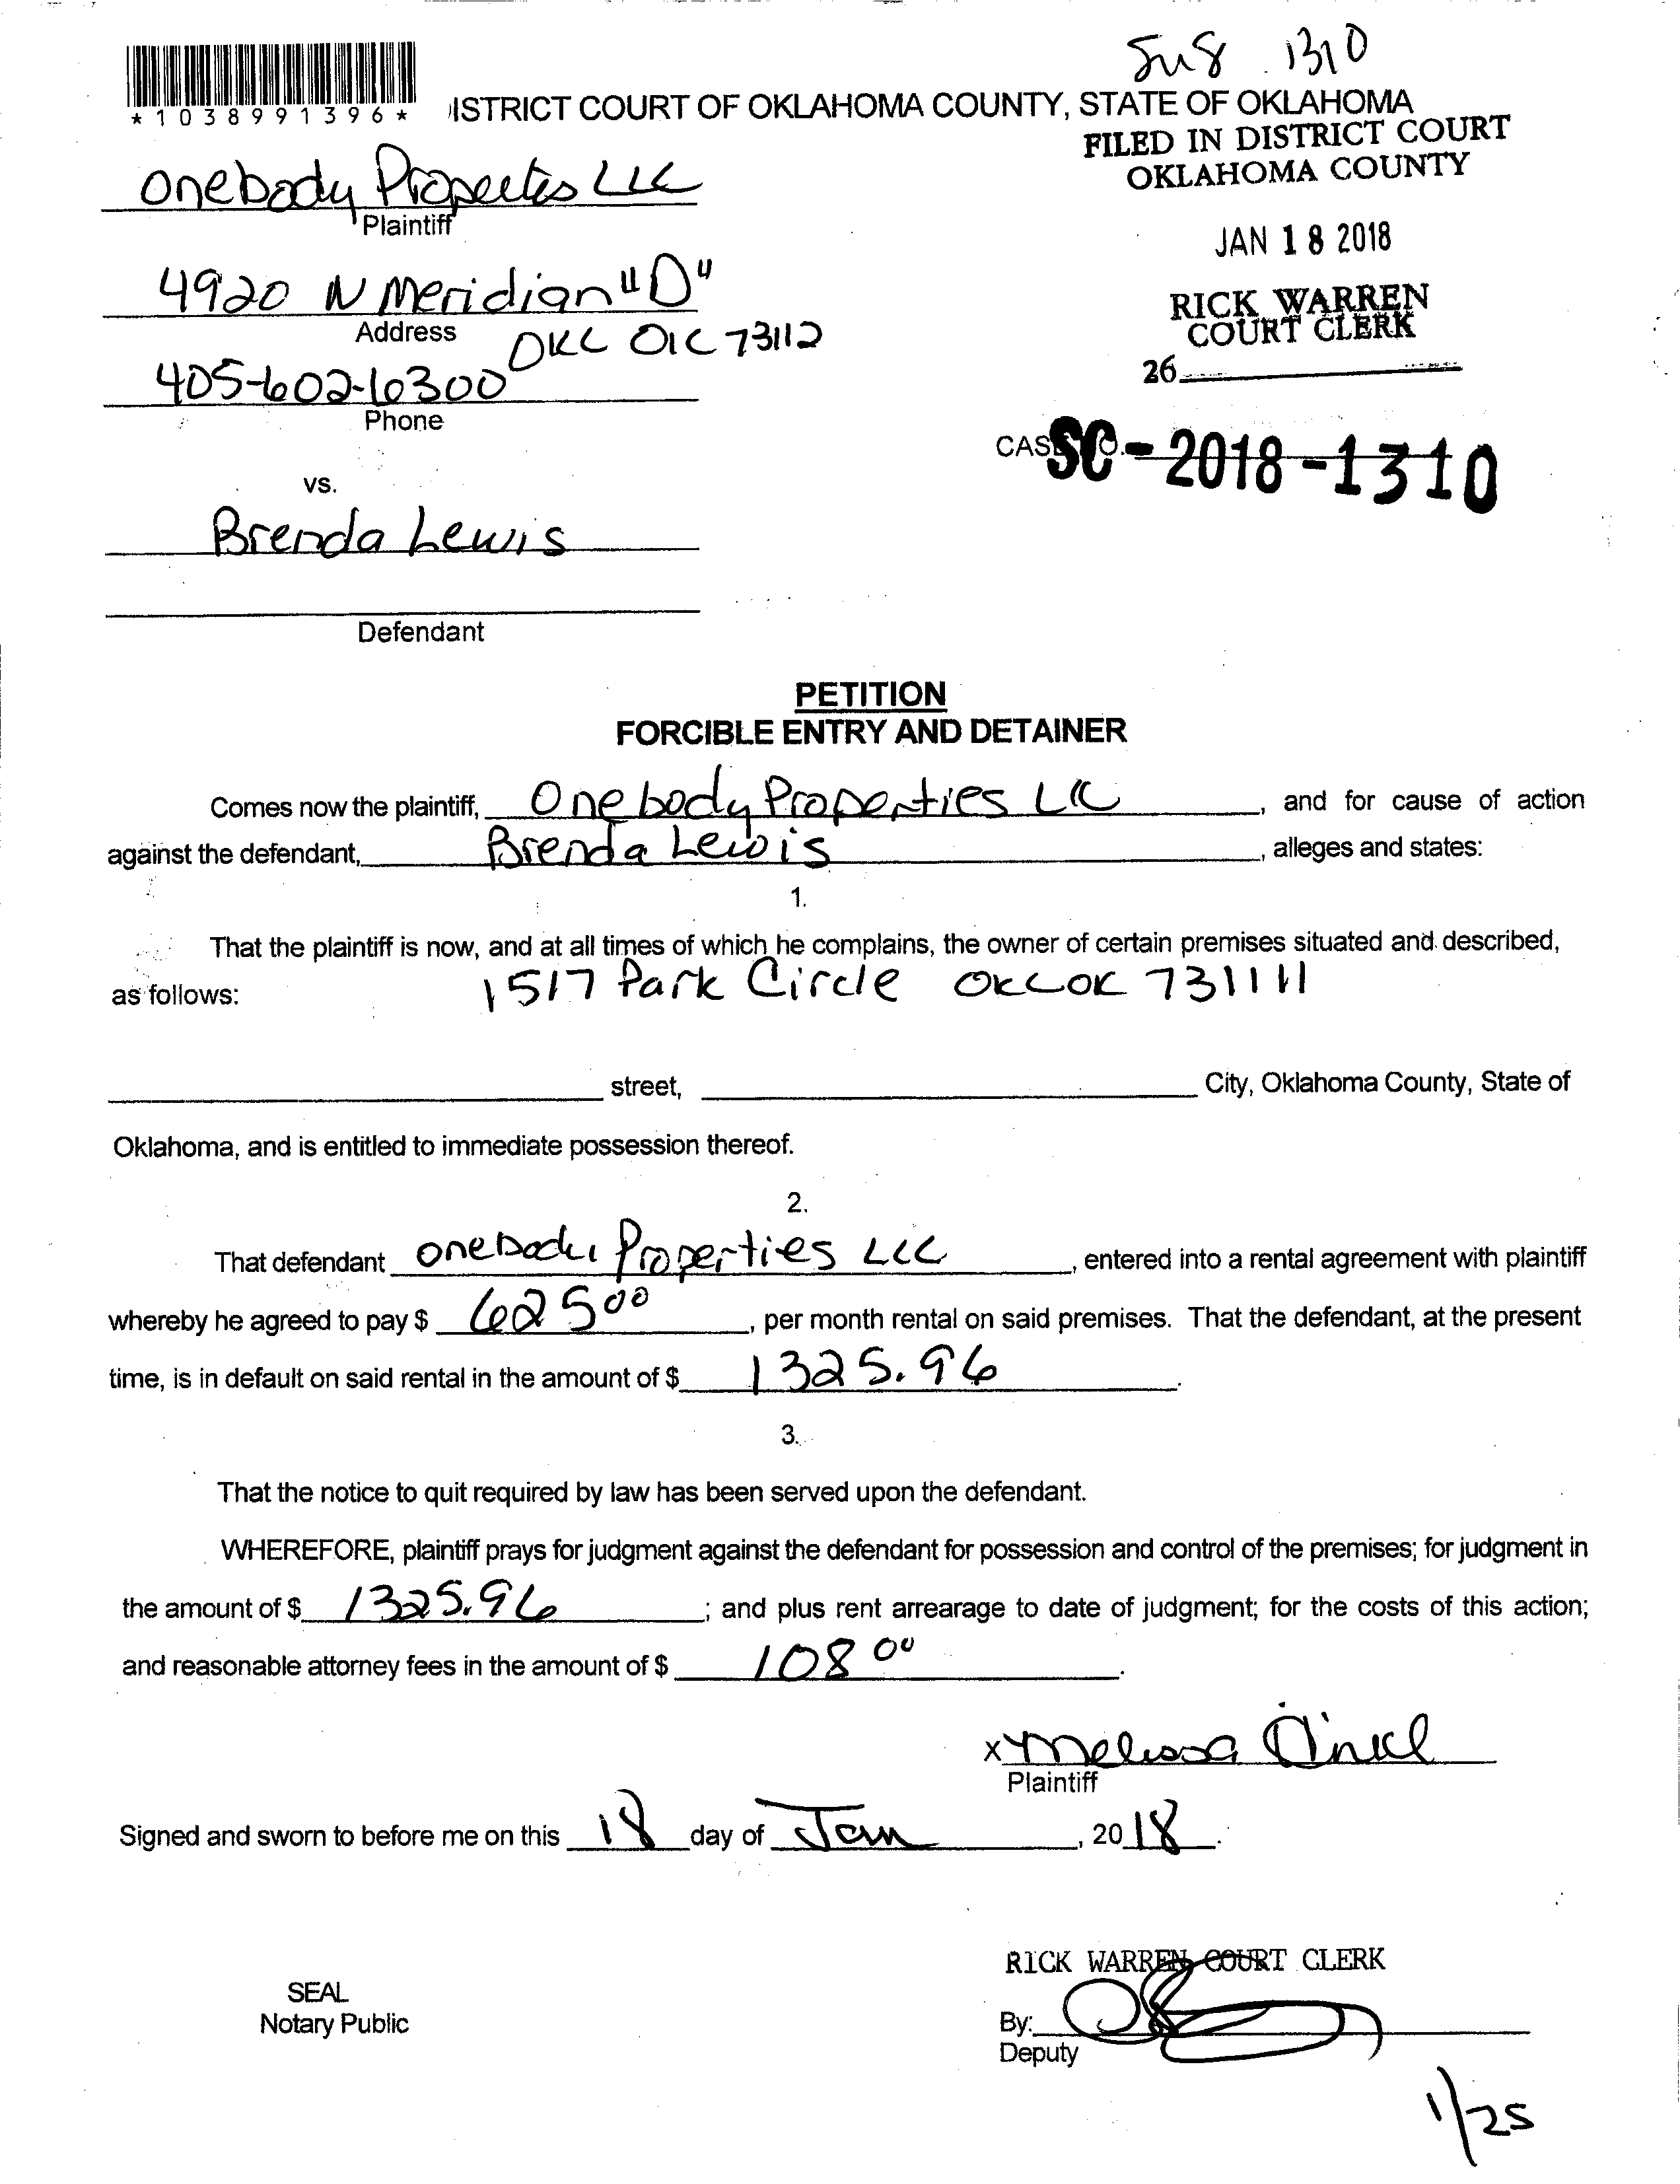 1310
*1038991396*
ISTRICT COURT OF OKLAHOMA COUNTY, STATE OF OKLAHOMA
FILED IN DISTRICT COURT
OKLAHOMA COUNTY
Onebody Properties LLC
Plaintiff
JAN 18 2018
4920 N Meridian "D"
Address
OKC OK 73112
RICK WARREN
COURT CLERK
26
405-602-6300
Phone
CAS SC-2018-1310
vs.
Brenda Lewis
Defendant
PETITION
FORCIBLE ENTRY AND DETAINER
Comes now the plaintiff, Onebody Properties LLC, and for cause of action
against the defendant, Brenda Lewis, alleges and states:
1.
That the plaintiff is now, and at all times of which he complains, the owner of certain premises situated and described,
as follows: 1517 Park Circle OKC OK 731111
street, City, Oklahoma County, State of
Oklahoma, and is entitled to immediate possession thereof.
2.
That defendant onebody Properties LLC, entered into a rental agreement with plaintiff
whereby he agreed to pay $ 625 00, per month rental on said premises. That the defendant, at the present
time, is in default on said rental in the amount of $ 1325.96.
3.
That the notice to quit required by law has been served upon the defendant.
WHEREFORE, plaintiff prays for judgment against the defendant for possession and control of the premises; for judgment in
the amount of $ 1325.96; and plus rent arrearage to date of judgment; for the costs of this action;
and reasonable attorney fees in the amount of $ 108 00.
x Melissa
Plaintiff
Signed and sworn to before me on this 18 day of Jan, 2018.
RICK WARREN COURT CLERK
SEAL
Notary Public
By:
Deputy
1/25